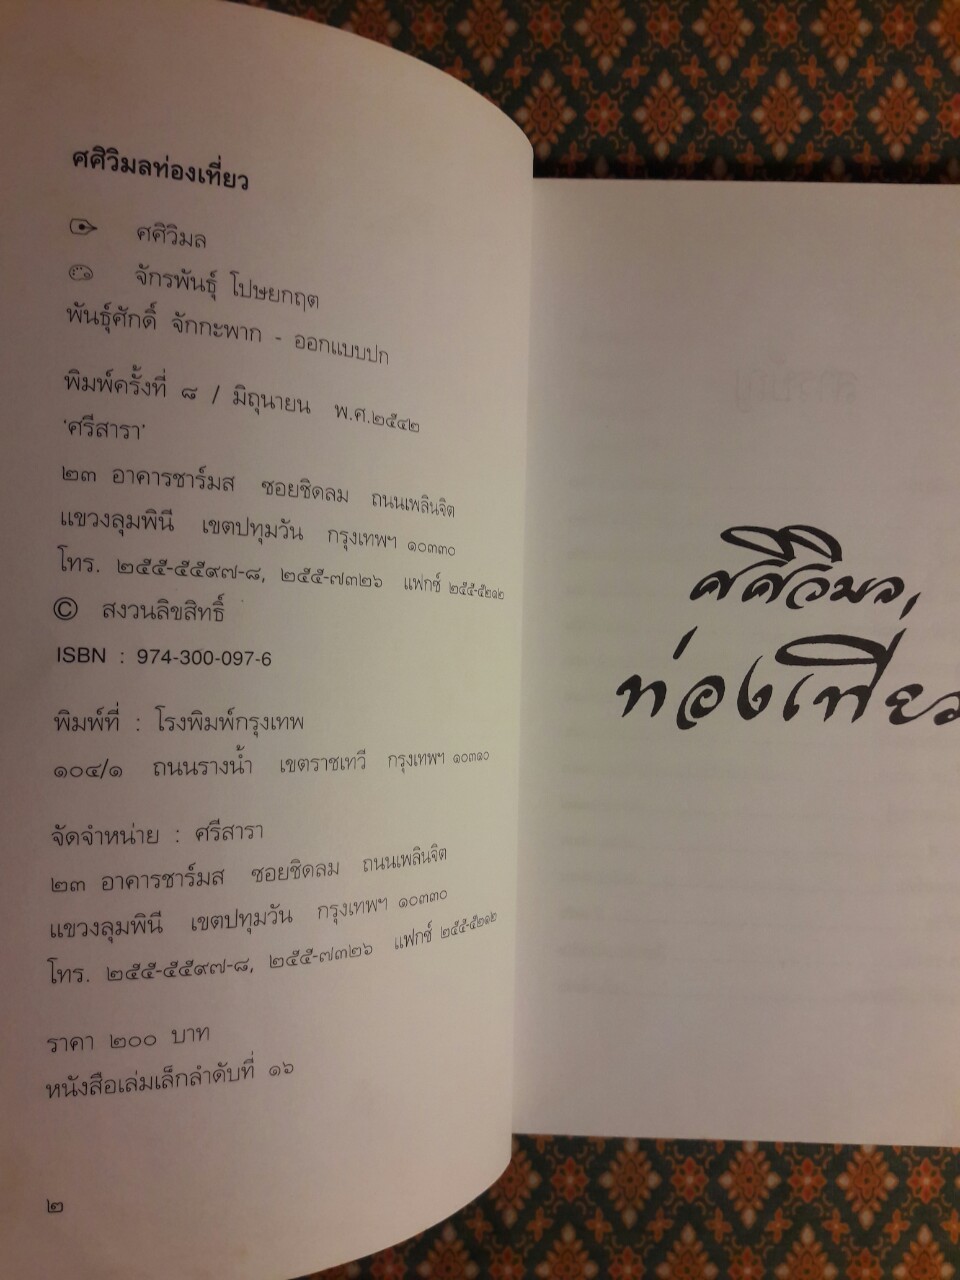 ศศิวิมลท่องเที่ยว
ศศิวิมล
จักรพันธุ์ โปษยกฤต
พันธุ์ศักดิ์ จักกะพาก - ออกแบบปก
พิมพ์ครั้งที่ ๘ / มิถุนายน พ.ศ.๒๕๔๒
'ศรีสารา'
๒๓ อาคารชาร์มส ซอยชิดลม ถนนเพลินจิต
แขวงลุมพินี เขตปทุมวัน กรุงเทพฯ ๑๐๓๓๐
โทร. ๒๕๕-๕๕๙๗-๘, ๒๕๕-๗๓๒๖ แฟกซ์ ๒๕๕-๕๒๑๒
© สงวนลิขสิทธิ์
ISBN : 974-300-097-6
พิมพ์ที่ : โรงพิมพ์กรุงเทพ
๑๐๔/๑ ถนนรางน้ำ เขตราชเทวี กรุงเทพฯ ๑๐๓๑๐
จัดจำหน่าย : ศรีสารา
๒๓ อาคารชาร์มส ซอยชิดลม ถนนเพลินจิต
แขวงลุมพินี เขตปทุมวัน กรุงเทพฯ ๑๐๓๓๐
โทร. ๒๕๕-๕๕๙๗-๘, ๒๕๕-๗๓๒๖ แฟกซ์ ๒๕๕-๕๒๑๒
ราคา ๒๐๐ บาท
หนังสือเล่มเล็กลำดับที่ ๑๖
๒
ศศิวิมล
ท่องเที่ยว